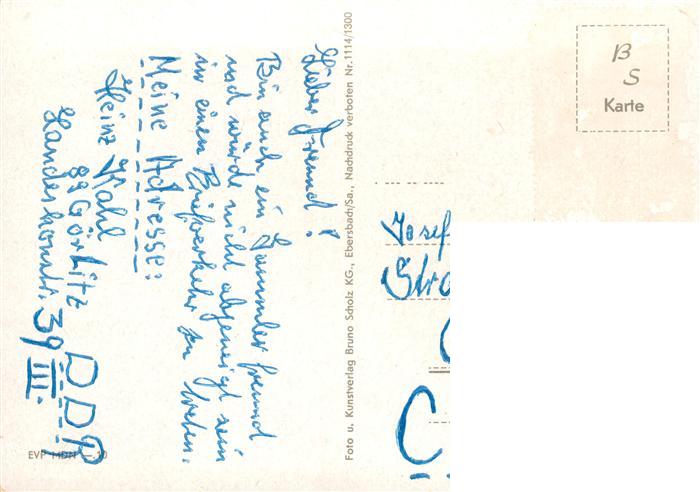 Lieber Freund!
Bin auch ein Sammlerfreund
und würde nicht abgeneigt sein
in einen Briefverkehr zu treten.
Meine Adresse:
Heinz Kahl
89 Görlitz
Landeskonstr. 39 III.
DDR
EVP MDN — 10
Foto u. Kunstverlag Bruno Scholz KG., Ebersbach/Sa., Nachdruck verboten Nr. 1114/1300
B
S
Karte
Josef